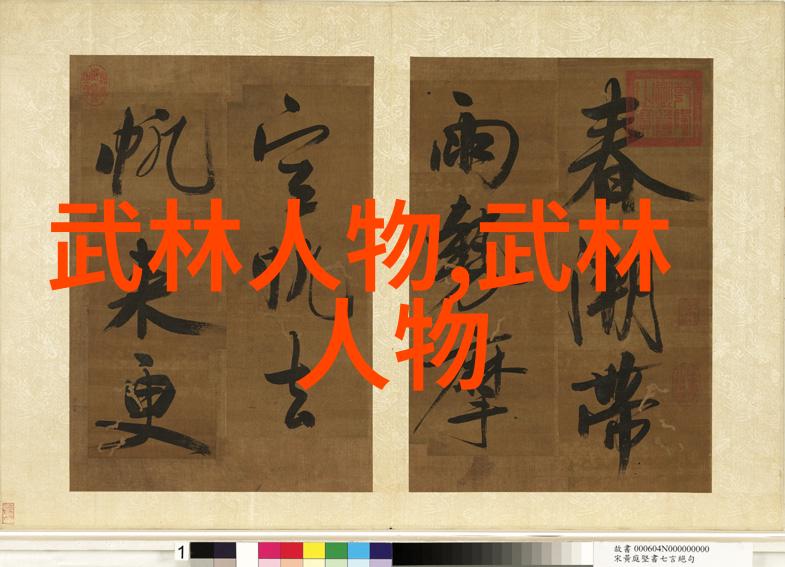 春潮帶
雨摩
空帆去
帆來更
武林人物,武林
人物
1
故書 000604N000000000
宋黃庭堅書七言絕句